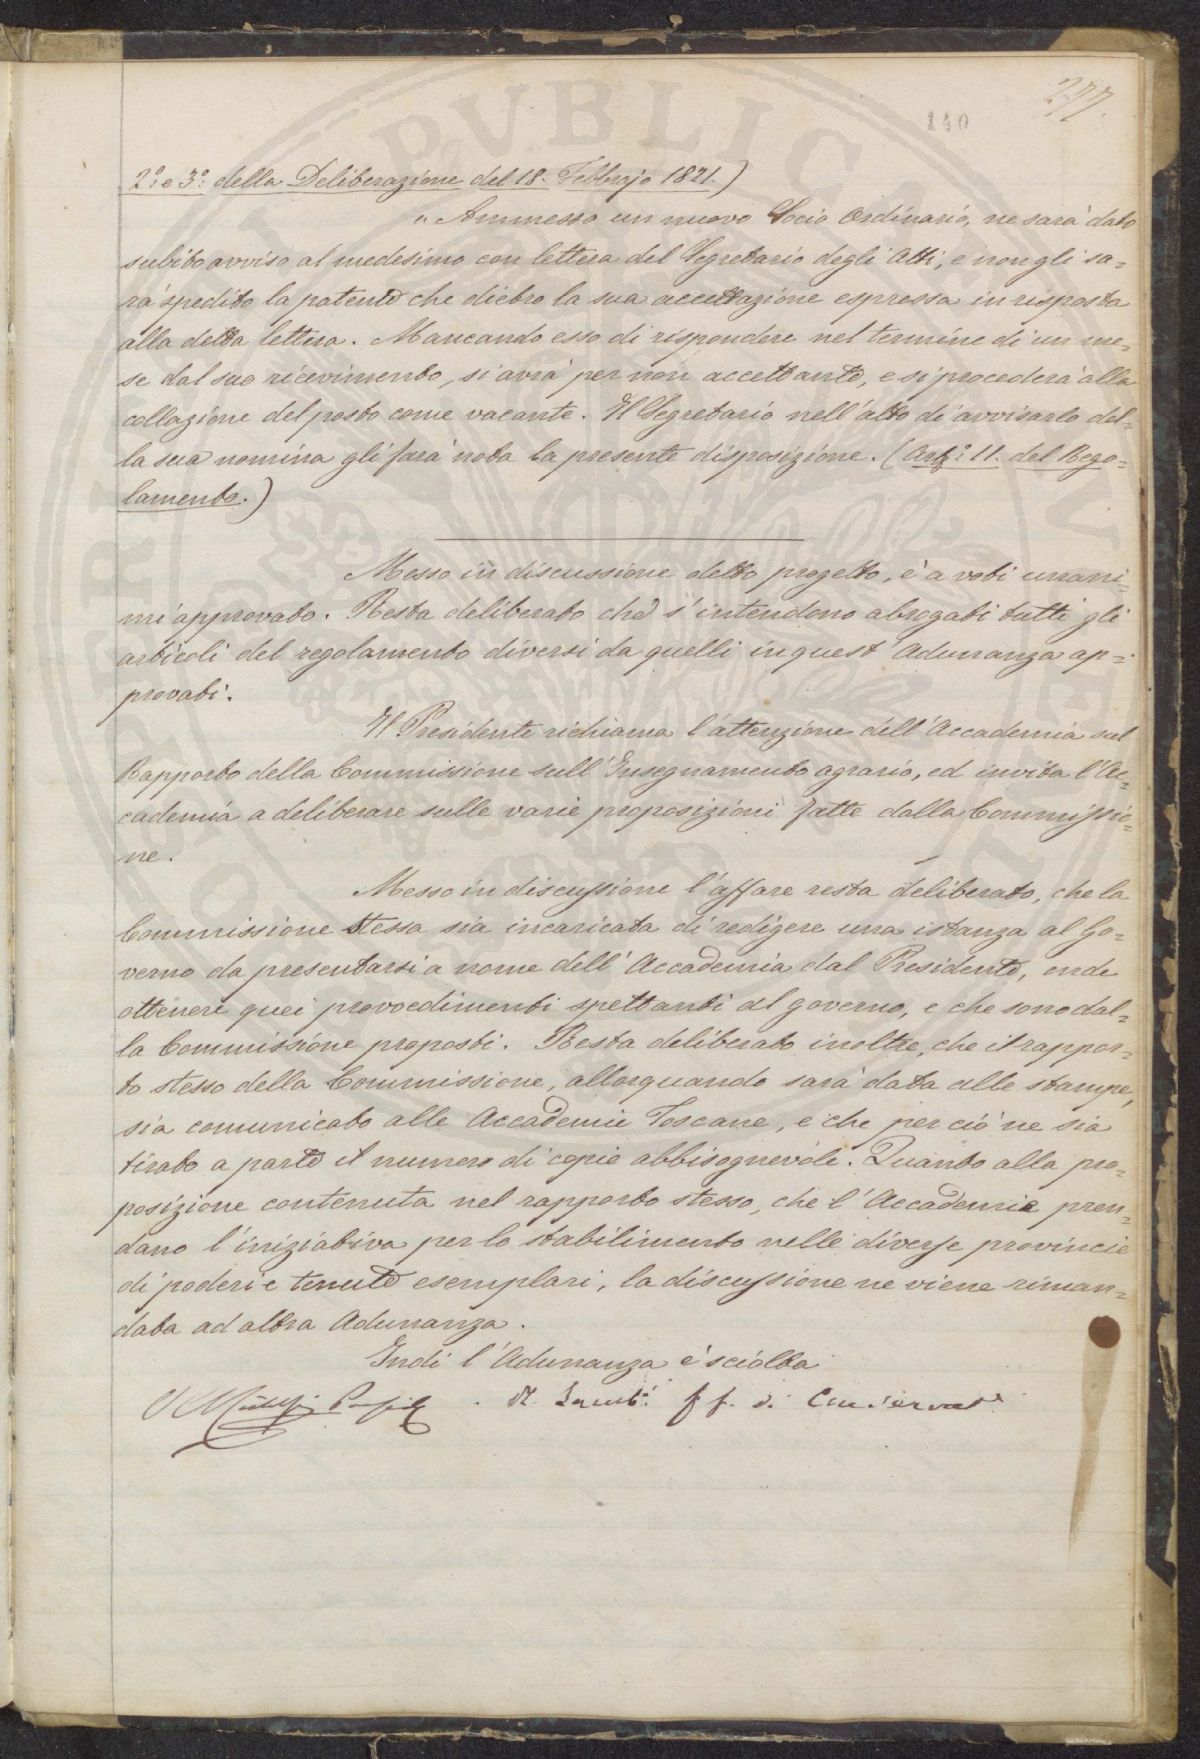 277.
140
2.° e 3.° della Deliberazione del 18. Febbrajo 1821.)
" Ammesso un nuovo Socio Ordinario, ne sarà dato
subito avviso al medesimo con lettera del Segretario degli Atti, e non gli sa=
rà spedito la patente che dietro la sua accettazione espressa in risposta
alla detta lettera. Mancando esso di rispondere nel termine di un me=
se dal suo ricevimento, si avrà per non accettante, e si procederà alla
collazione del posto come vacante. Il Segretario nell'atto di avvisarlo del=
la sua nomina gli farà nota la presente disposizione. (Art.° 11. del Rego=
lamento.)
Messo in discussione detto progetto, è a voti unani=
mi approvato. Resta deliberato che s'intendono abrogati tutti gli
articoli del regolamento diversi da quelli in quest'Adunanza ap=
provati.
Il Presidente richiama l'attenzione dell'Accademia sul
Rapporto della Commissione sull'Insegnamento agrario, ed invita l'Ac=
cademia a deliberare sulle varie proposizioni fatte dalla Commissio=
ne.
Messo in discussione l'affare resta deliberato, che la
Commissione stessa sia incaricata di redigere una istanza al Go=
verno da presentarsi a nome dell'Accademia dal Presidente, onde
ottenere quei provvedimenti spettanti al governo, e che sono dal=
la Commissione proposti. Resta deliberato inoltre, che il rappor=
to stesso della Commissione, allorquando sarà data alle stampe,
sia comunicato alle Accademie Toscane, e che per ciò ne sia
tirato a parte il numero di copie abbisognevole. Quanto alla pro=
posizione contenuta nel rapporto stesso, che l'Accademie pren=
dano l'iniziativa per lo stabilimento nelle diverse provincie
di poderi e tenute esemplari, la discussione ne viene riman=
data ad altra Adunanza.
Indi l'Adunanza è sciolta
ff. di Conservat